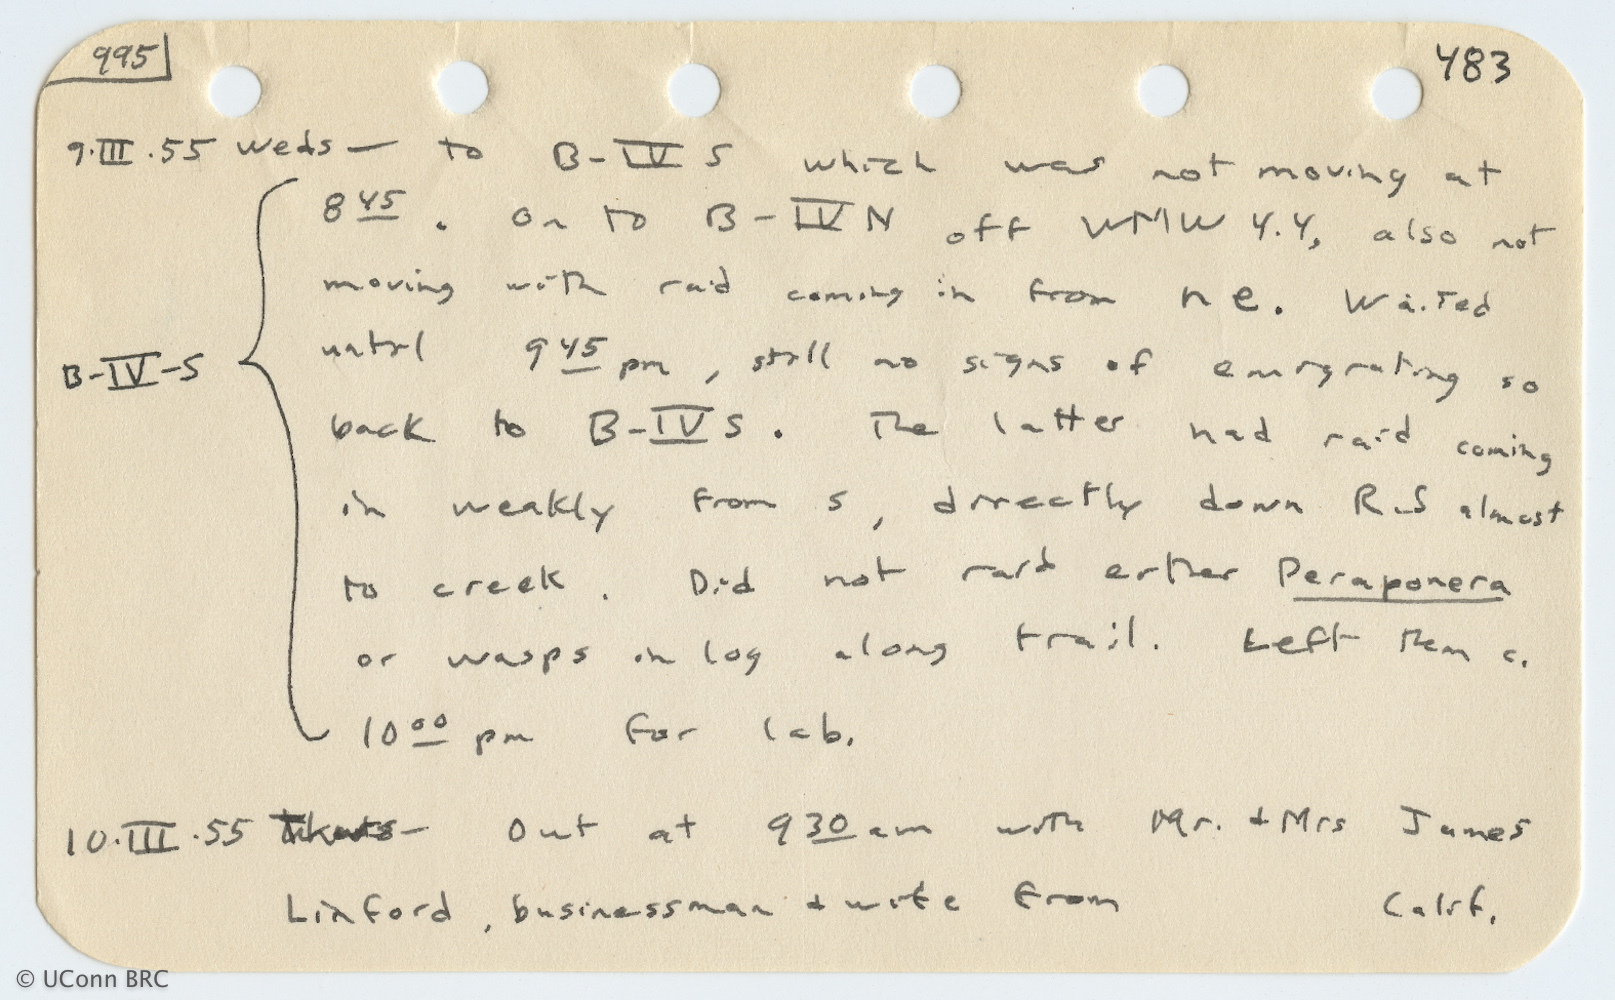 995
483
9.III.55 weds — to B-IV S which was not moving at
8 45. On to B-IV N off WMW 4.4, also not
moving with raid coming in from ne. Waited
until 9 45 pm, still no signs of emigrating so
B-IV-S
back to B-IV S. The latter had raid coming
in weakly from S, directly down R.S almost
to creek. Did not raid either Peraponera
or wasps in log along trail. Left them c.
10 00 pm for lab.
10.III.55 Thurs — Out at 9 30 am with Mr. + Mrs James
Linford, businessman + wife from Calif.
© UConn BRC